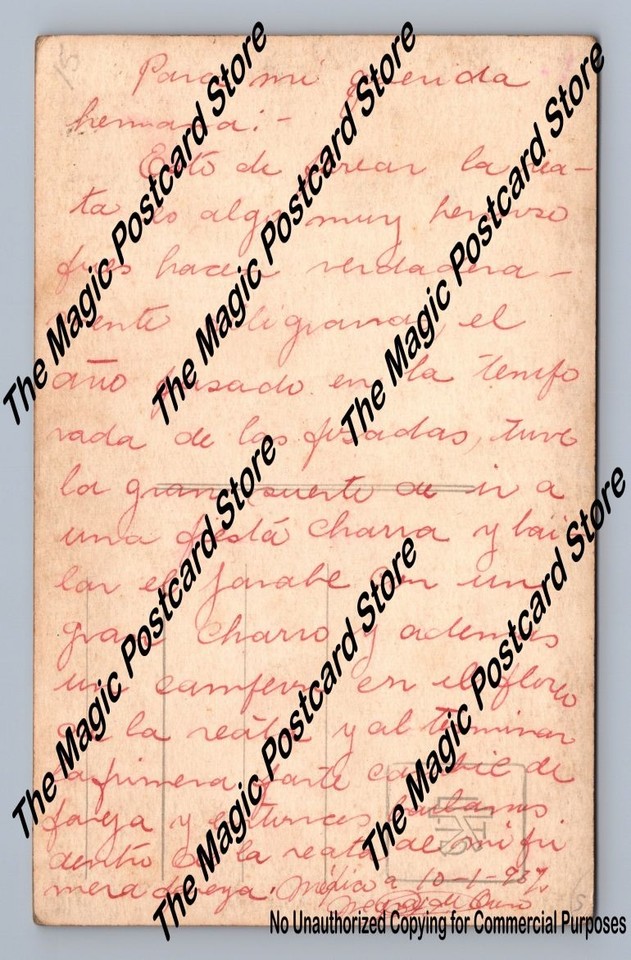 15
Para mi querida
hermana:-
Esto de florear la rea-
ta es algo muy hermoso
pues hacen verdadera-
mente filigrana, el
año pasado en la tempo
rada de las posadas, tuve
la gran suerte de ir a
una fiesta charra y bai
lar el jarabe con un
gran charro y además
un campeón en el floreo
de la reata y al terminar
la primera parte cambié de
pareja y entonces bailamos
dentro de la reata de mi pri
mera pareja. México a 10-1-937.
The Magic Postcard Store
The Magic Postcard Store
The Magic Postcard Store
The Magic Postcard Store
The Magic Postcard Store
The Magic Postcard Store
No Unauthorized Copying for Commercial Purposes